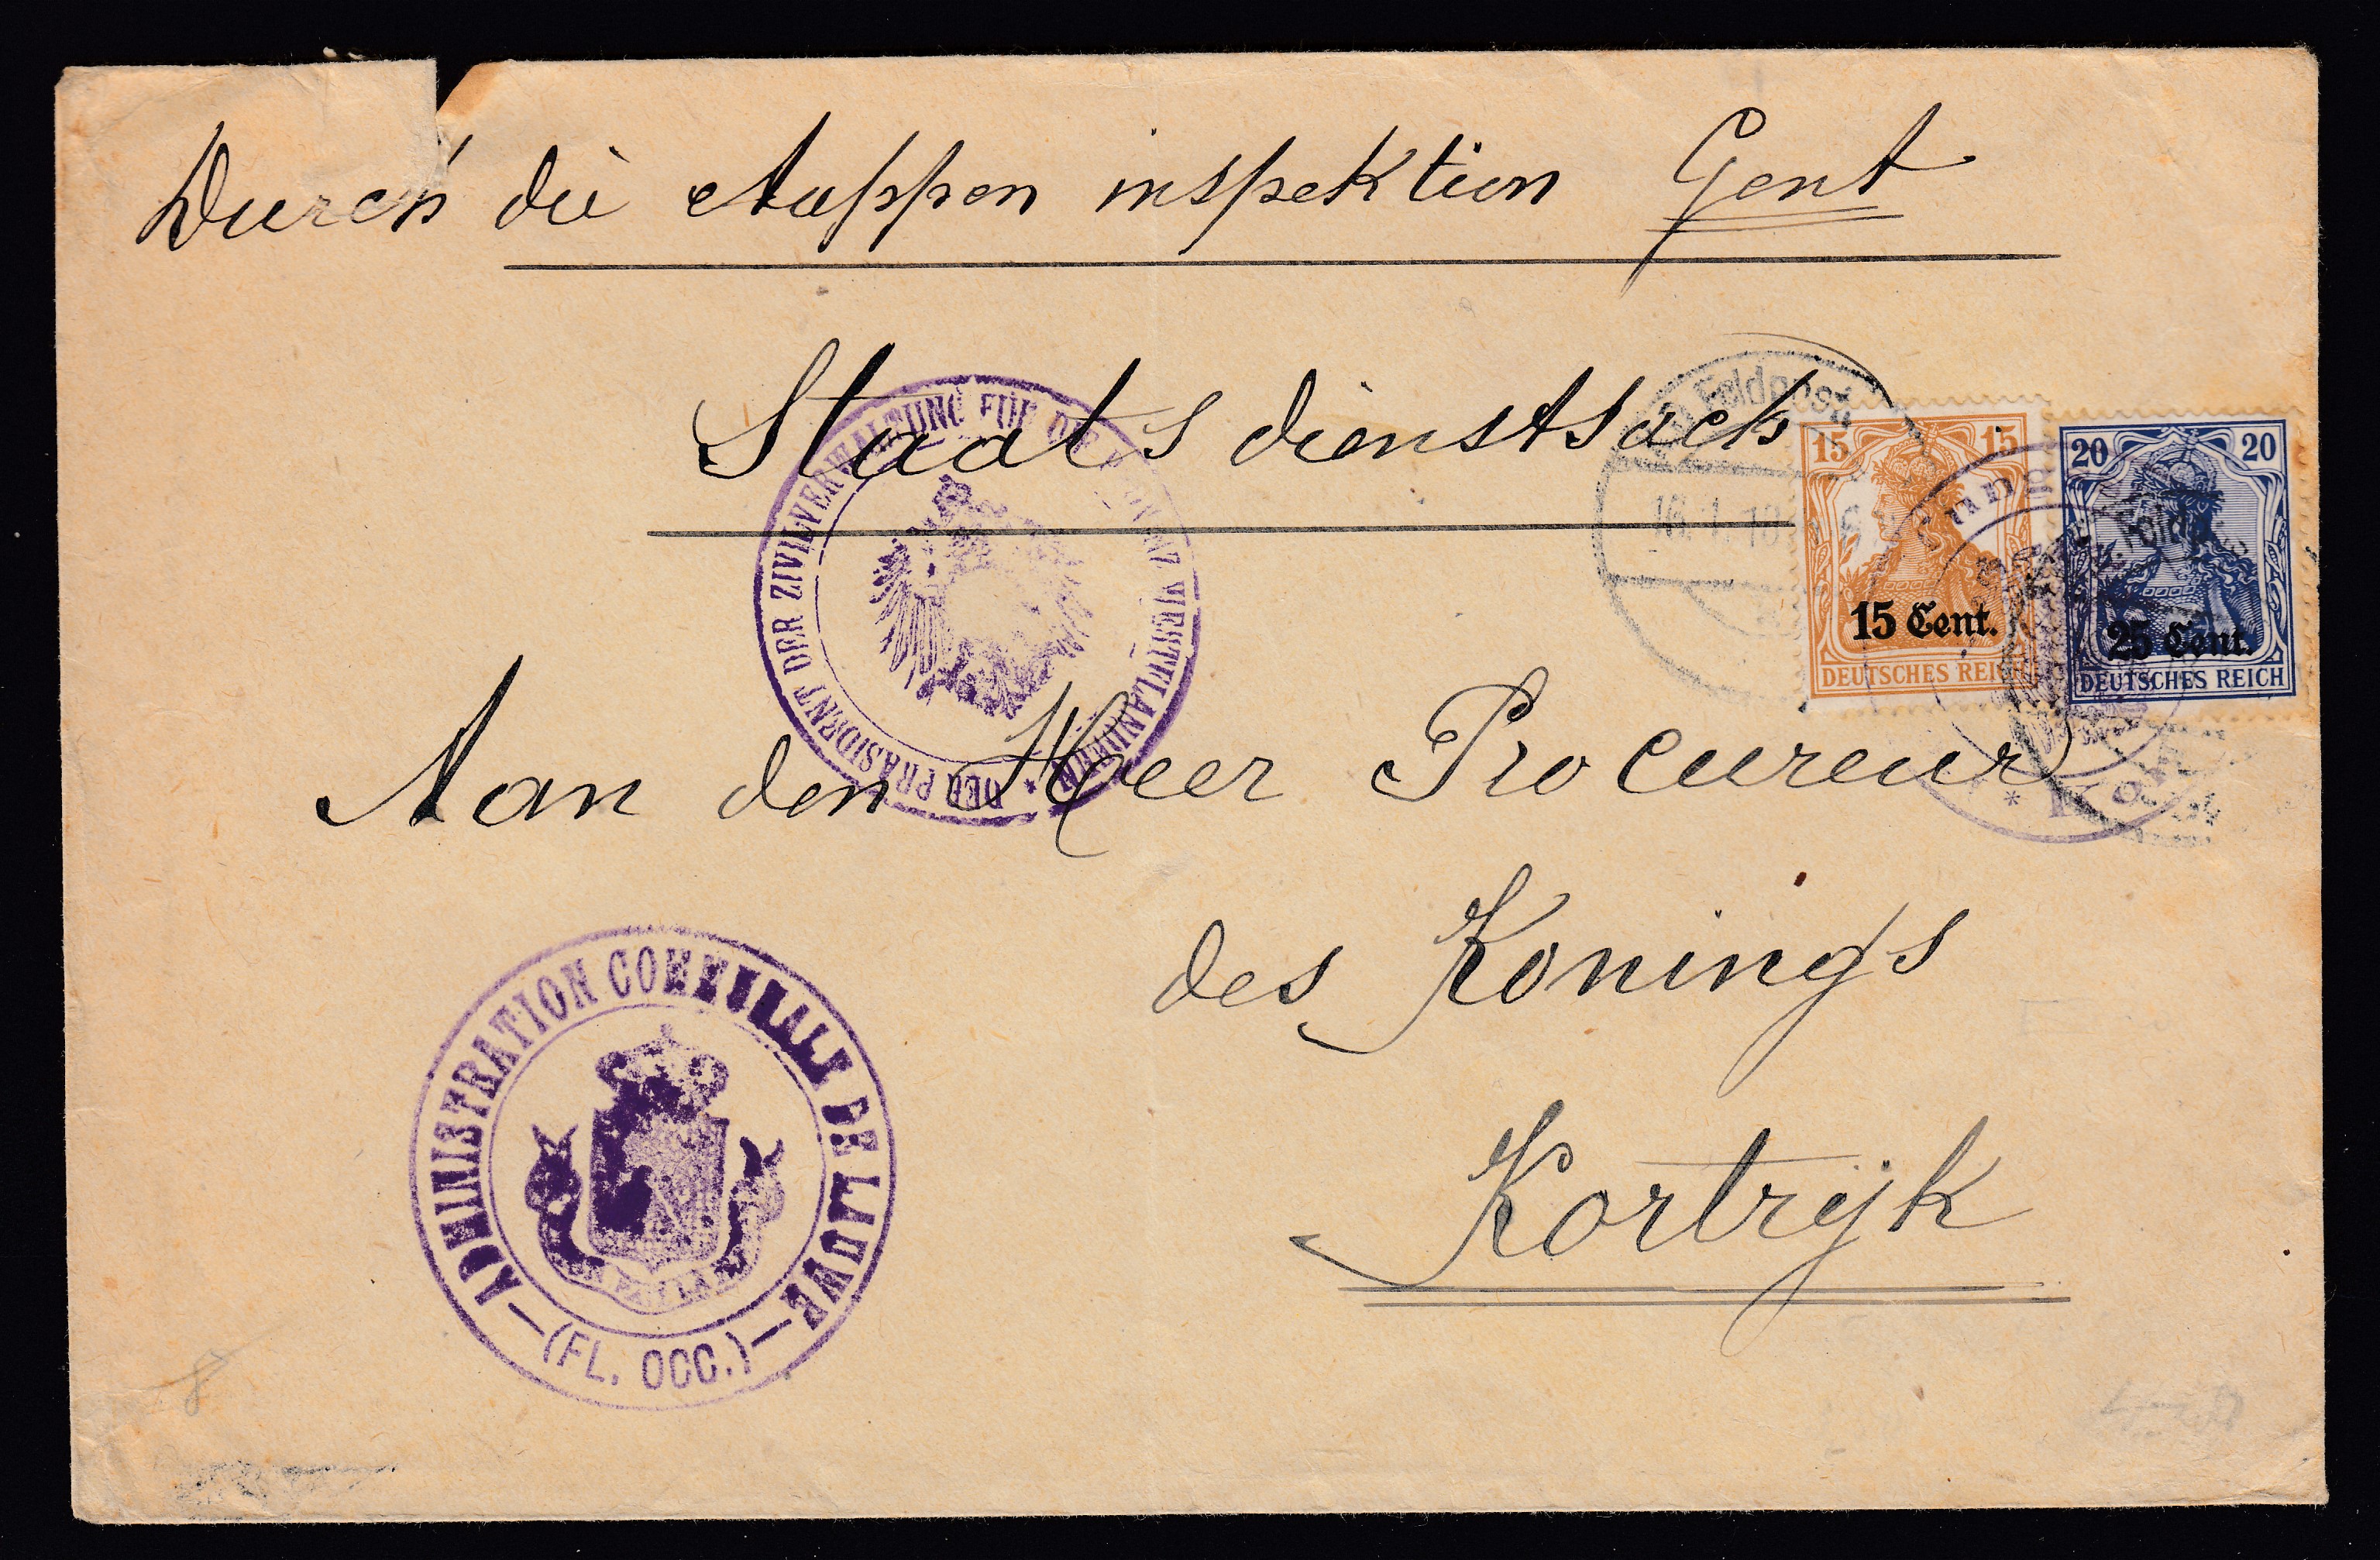 Durch die etappen inspektion Gent
Staats dienstsach
Feldpost
16. 1. 18
15 15
15 Cent.
DEUTSCHES REICH
20 20
25 Cent.
DEUTSCHES REICH
DER PRÄSIDENT DER ZIVILVERWALTUNG FÜR DIE PROVINZ WESTFLANDERN *
Aan den Heer Procureur
des Konings
Kortrijk
ADMINISTRATION COMMUNALE DE LAUWE
(FL. OCC.)